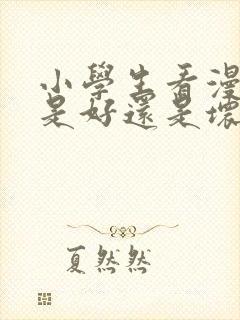 小學生看漫
是好還是壞
夏然然